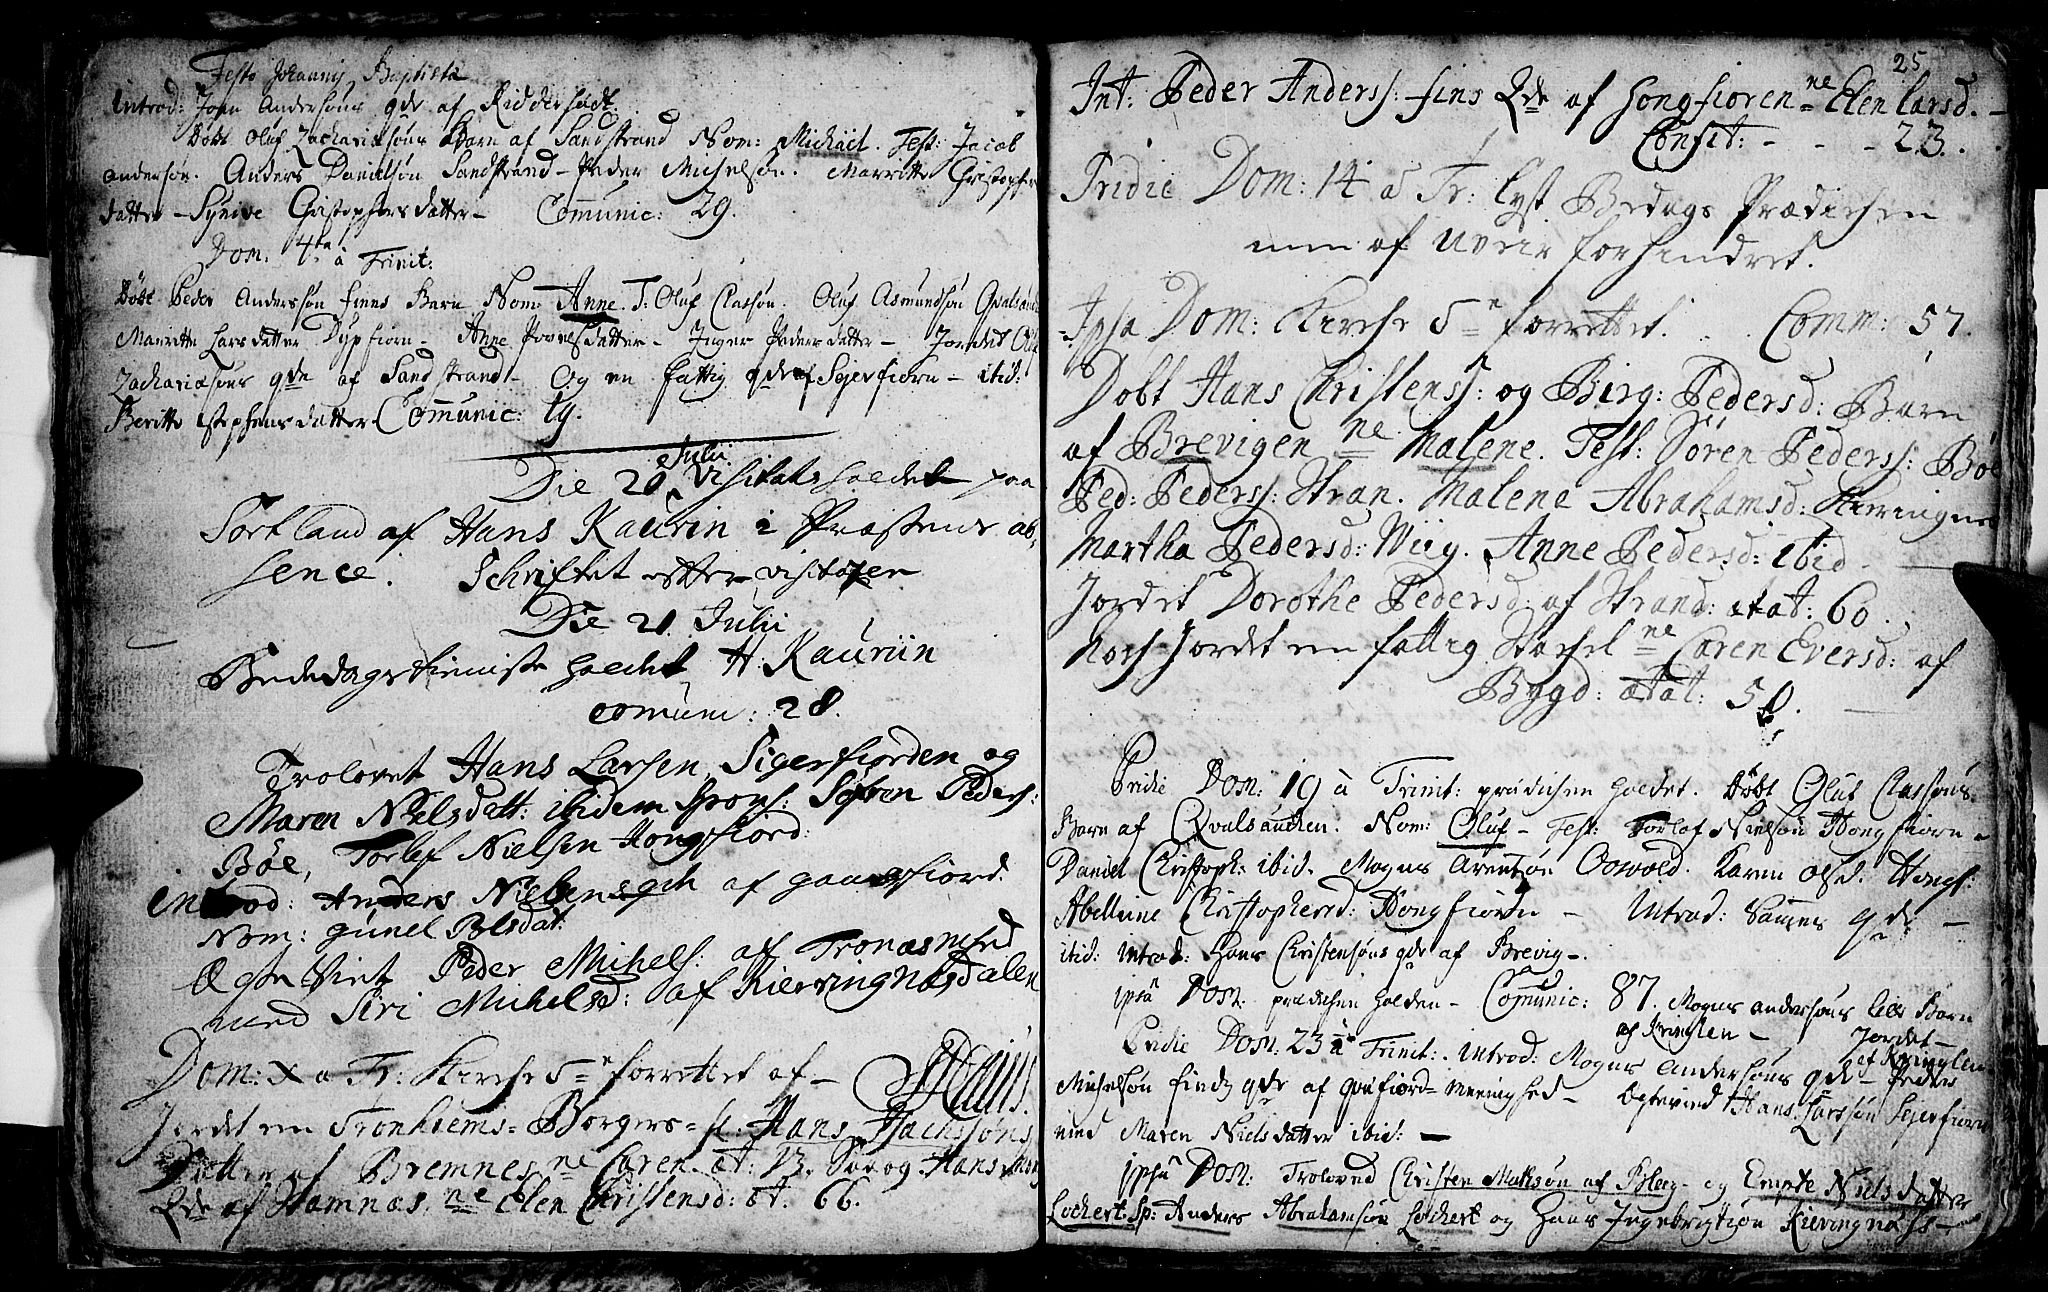 Festo Johannis Baptistæ
Introd: Joen Andersøns qde af Ridderstedt.
Døbt Oluf Zachariæsøns Barn af Sandstrand Nom: Michäel. Test: Jacob
andersøn. Anders Danielsøn Sandstrand – Peder Michelsøn. Marritte Christopher
datter – Synive Christophersdatter – Comunic: 29.
Dom: 4ta à Trinit:
Døbt Peder Anderssøn finns Barn Nom: Anne. T: Oluf Classøn. Oluf Asmundsøn Qvalsaud
Marritte Larsdatter Dypfiorn – Anne Povelsdatter – Inger Pedersdatter – Jordet Oluf
Zachariæsøns qde af Sandstrand – Og en fattig qde af Sejerfiorn – ibid:
Beritte Stephensdatter Comunic: 19.
Die 20 Julii Visitats holdet paa
Sortland af Hans Kaurin i Præstens ab-
sence. Schriftet etter visitasen
Die 21. Julii
Bededagstieniste holdet H Kauriin
comuni: 28.
Trolovet Hans Larsen Sigersfiorden og
Maren Nielsdatt: ibidem Spons: Søfren Peders:
Böe, Torlef Nielsen Hongsfiord:
Introd: Anders Nielsens qde af gaansfiord
Nom: günel Olsdat:
Ægte Viet Peder Michels: af Tronæsmed
med Siri Michelsd: af Kierringnæsdalen
Dom: X a Tr: Kirche 5ne forrettet af –
Jordet en Tronhiems = Borgers = sl. Hans Hachssøns
Dotter af Bremnes ne Caren. æt: 13. Saa og Hans
Qde af Hamnæs. ne Elen Christensd: æt. 66.
25
Int: Peder Anderss: fins Qde af Hongfioren ne Elen Larsd. –
Confit: - - - 23.
Pridie Dom: 14 a Tr: lyst Bedags Prædichen
men af Uveir forhindret.
Ipsa Dom: Kirche 5ne forrettet. Comm: 57.
Dobt Hans Christenss: og Birg: Pedersd: Barn
af Brevigen ne Malene. Test: Sören Pederss: Bøe
Ped: Pederss: Stran. Malene Abrahamsd: Kieringnes
Martha Pedersd: Wiig. Anne Pedersd: ibid –
Jordet Dorothe Pedersd: af Strand: ætat: 60.
Noch Jordet en fattig Stachel ne Caren Eversd: af
Bygd: ætat: 50.
Pridie Dom: 19 à Trinit: prædichen holdet. Døbt Oluf Classøns
Barn af Qvalsauchen. Nom: Oluf – Test: Torlof Nielsøn Hongfiorn –
Daniel Christoph: ibid. Mogns Arentsøn Oswold. Karen Olsd. Hongf:
Abellvine Christophersd: Hongfiorn – Introd: Sammes qde –
ibid: Introd: Hans Christensøns qde af Brevig –.
ipsâ Dom: prædichen holden – Comunic: 87. Mogns andersøns lille Barn
af Kringlen – Jordet –
Pridie Dom: 23 à Trinit: Introd: Mogns Andersøns qde – af Kringlen Peder
Michelsøn finds qde af gaufiord = Menighed – Egtevied Hans Larssøn Sejerfiorn
med Maren Nielsdatter ibid: –
ipsâ Dom: Troloved Christen Matsøn af Bleeg – og Empte Nielsdatter
Lochert. Sp: Anders Abrahamsøn Lochert og Hans Ingebrigtsøn Kieringnæss –